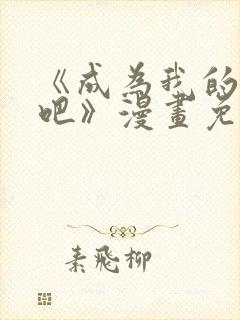 《成为我的
吧》漫画免
素飛柳